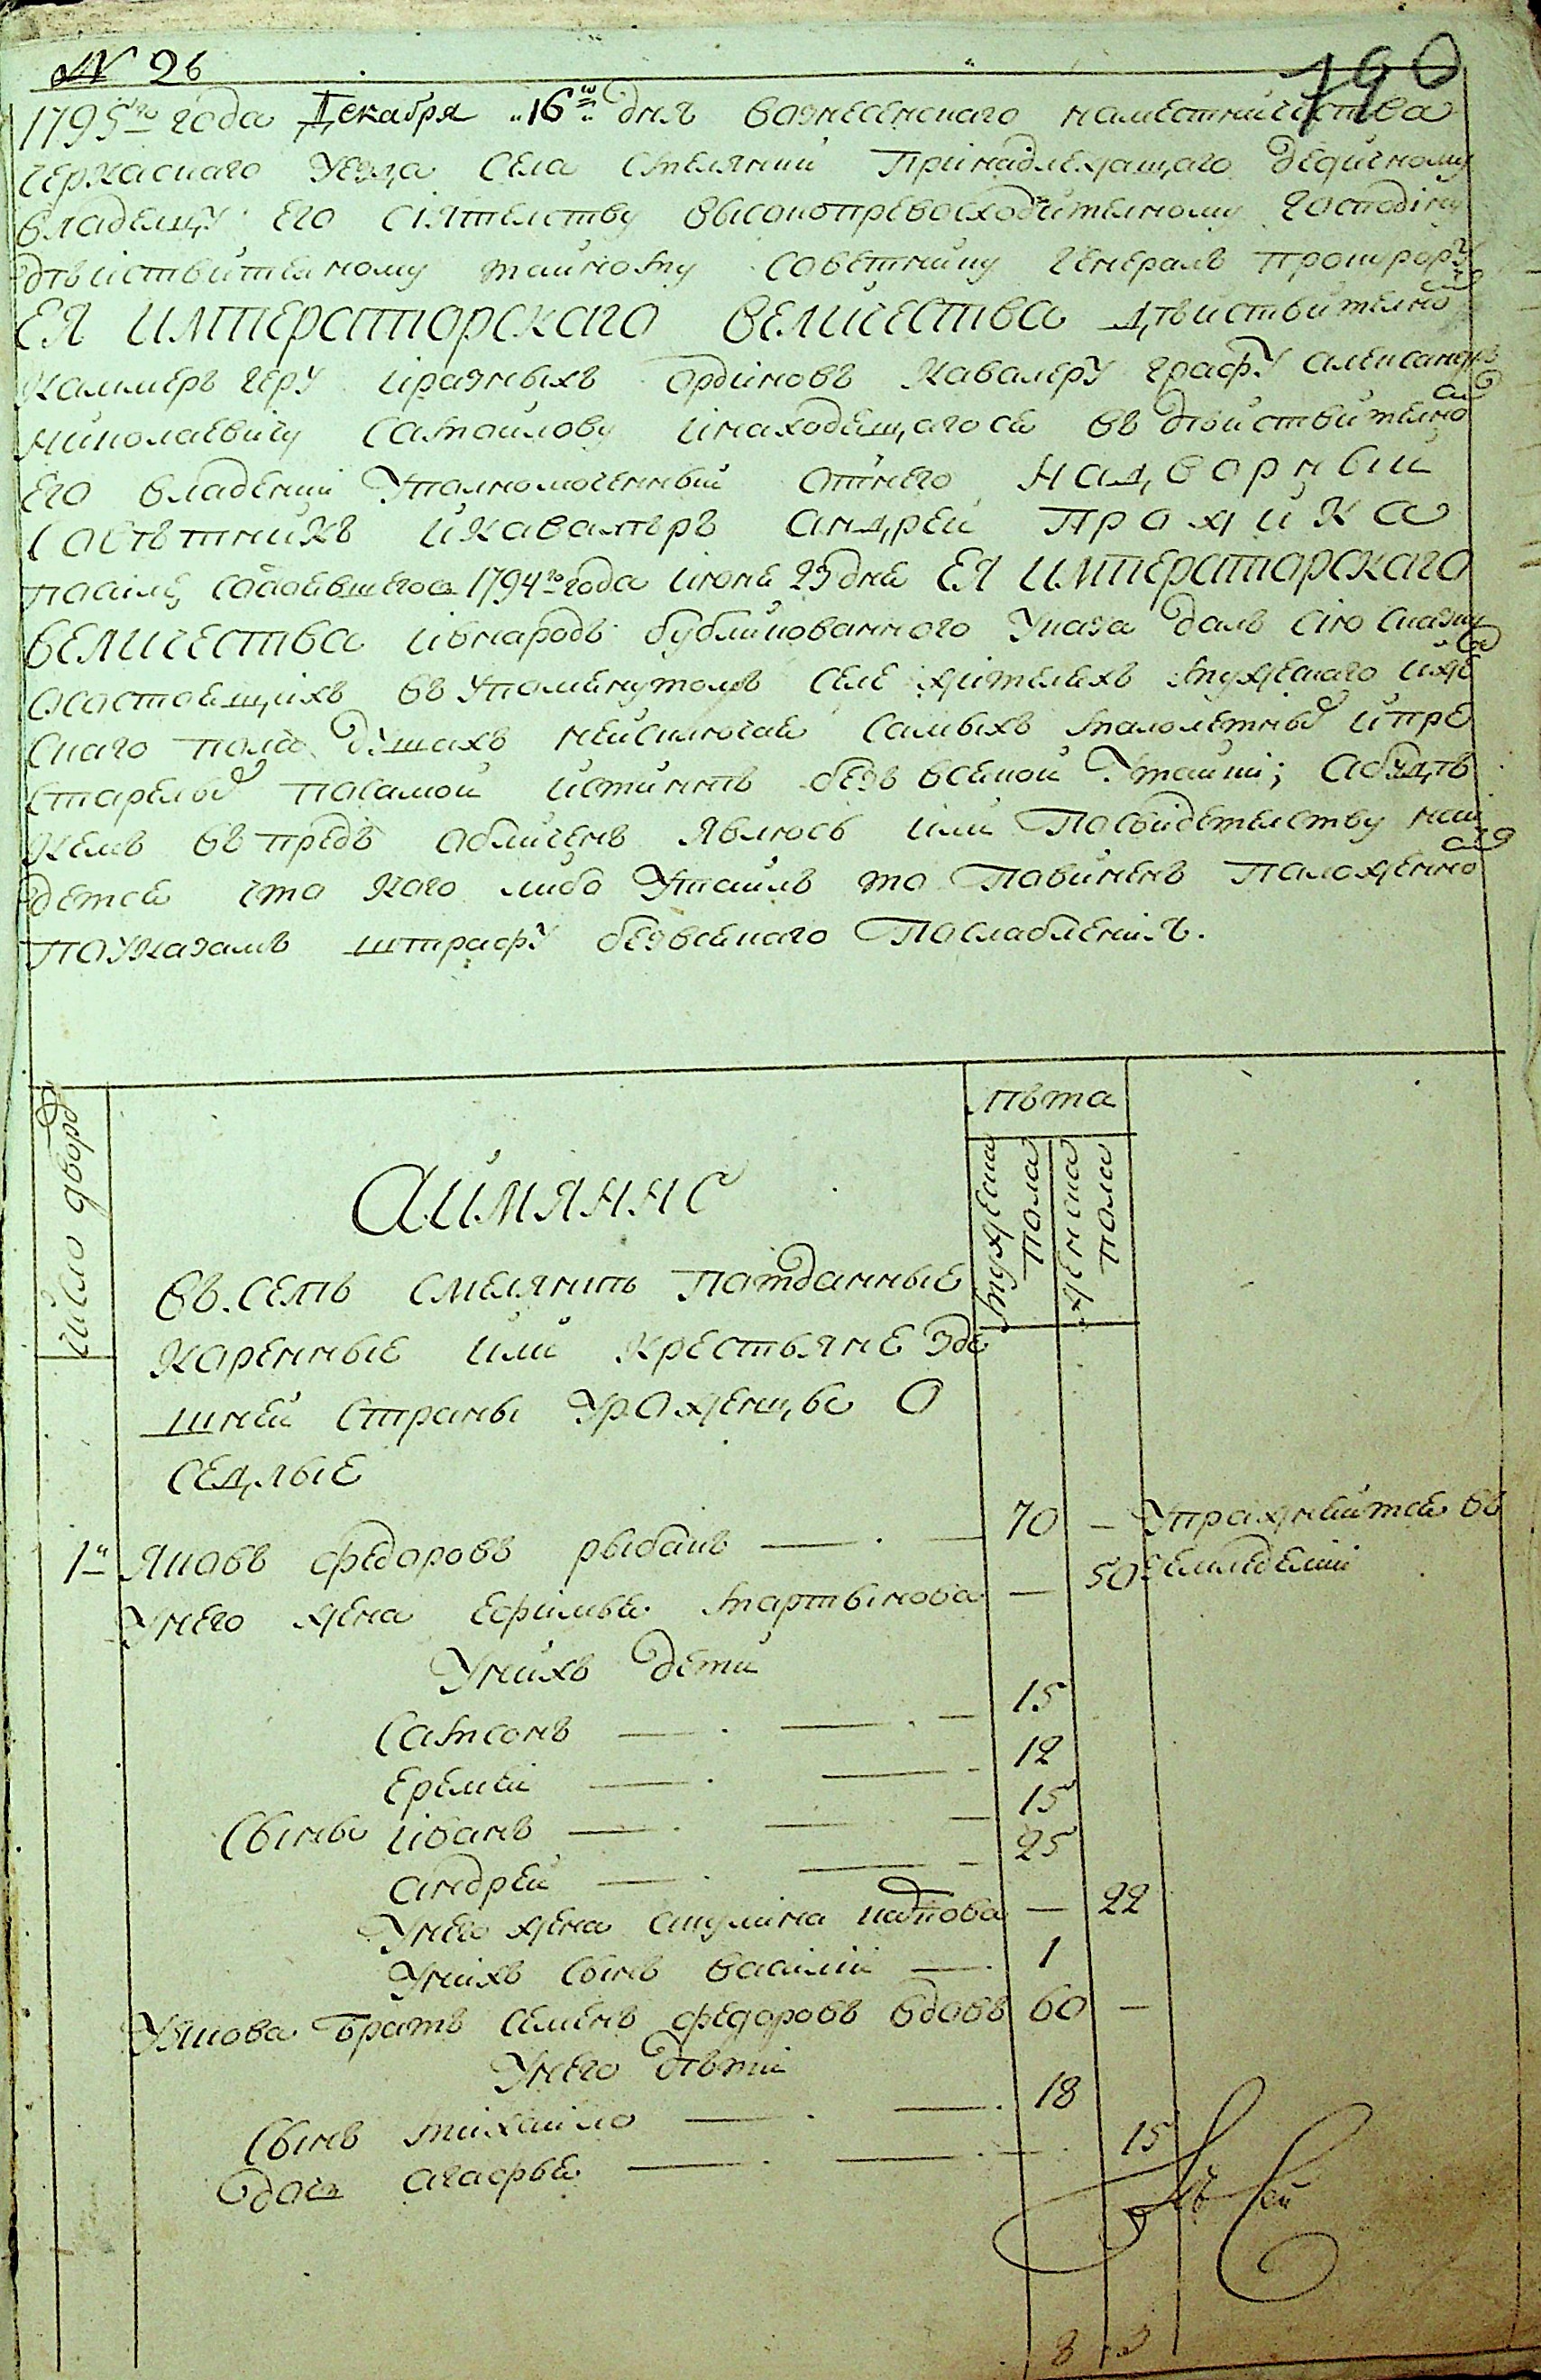 № 26
190
1795го года Декабря 16го дня вознесенскаго наместничества
черкаскаго уезда села смелянки принадлежащаго дедичному
владелцу его сиятелству высокопревосходителному господіну
действителному тайному советнику генералъ прокурору
ея императорскаго величества действително
каммеръ геру и разныхъ ординовъ кавалеру графу александръ
николаевичу самойлову и находещагосе въ действително
его владении уполномоченный отнего надворный
советникъ и кавалеръ андрей прожика
посилѣ состоевшегось 1794го года июне 23 дне ея императорскаго
величества ивнародъ бубликованного указа далъ сию сказку
осостоещихъ въ упоменутомъ селе жителехъ мужескаго иже
скаго пола душахъ неисключае самыхъ малолетныхъ ипре
старелыхъ посамой истиннѣ безъ всекой утайки; абудѣ
кемъ въпредъ обличенъ явлюсь или посвидетелству най
детсе что кого либо утаилъ то повиненъ положенно
поуказамъ штрафу безвсекаго послабления.
число дворовъ
лѣта
мужеска пола
женска пола
Аимянно
въ селѣ смелянкѣ потданные
коренные или крестьяне зде
шней страны уроженцы о
седлые
1й Яковъ федоровъ рыбакъ — 70 — упражняйтсе въ
унего жена ефимье мартынова — 50 земледелии
унихъ дети
самсонъ — 15
еремей — 12
сыны иванъ — 15
андрей — 25
унего жена акулина — 22
унихъ сынъ василий — 1
уякова братъ семенъ федоровъ вдовъ 60 —
унего дѣти
сынъ михайло — 18
дочь агафье — 15
8 3